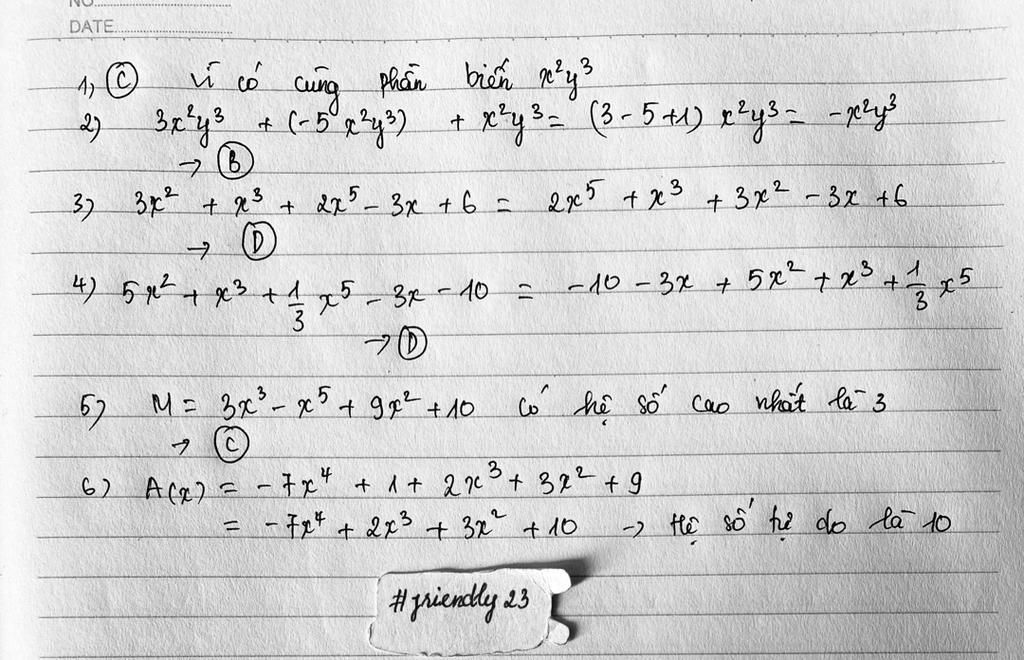 NO.
DATE
1) C vì có cùng phần biến x²y³
2) 3x²y³ + (-5x²y³) + x²y³ = (3 - 5 + 1) x²y³ = -x²y³
→ B
3) 3x² + x³ + 2x⁵ - 3x + 6 = 2x⁵ + x³ + 3x² - 3x + 6
→ D
4) 5x² + x³ + 1/3 x⁵ - 3x - 10 = -10 - 3x + 5x² + x³ + 1/3 x⁵
→ D
5) M = 3x³ - x⁵ + 9x² + 10 có hệ số cao nhất là 3
→ C
6) A(x) = -7x⁴ + 1 + 2x³ + 3x² + 9
= -7x⁴ + 2x³ + 3x² + 10 → Hệ số tự do là 10
#friendly 23